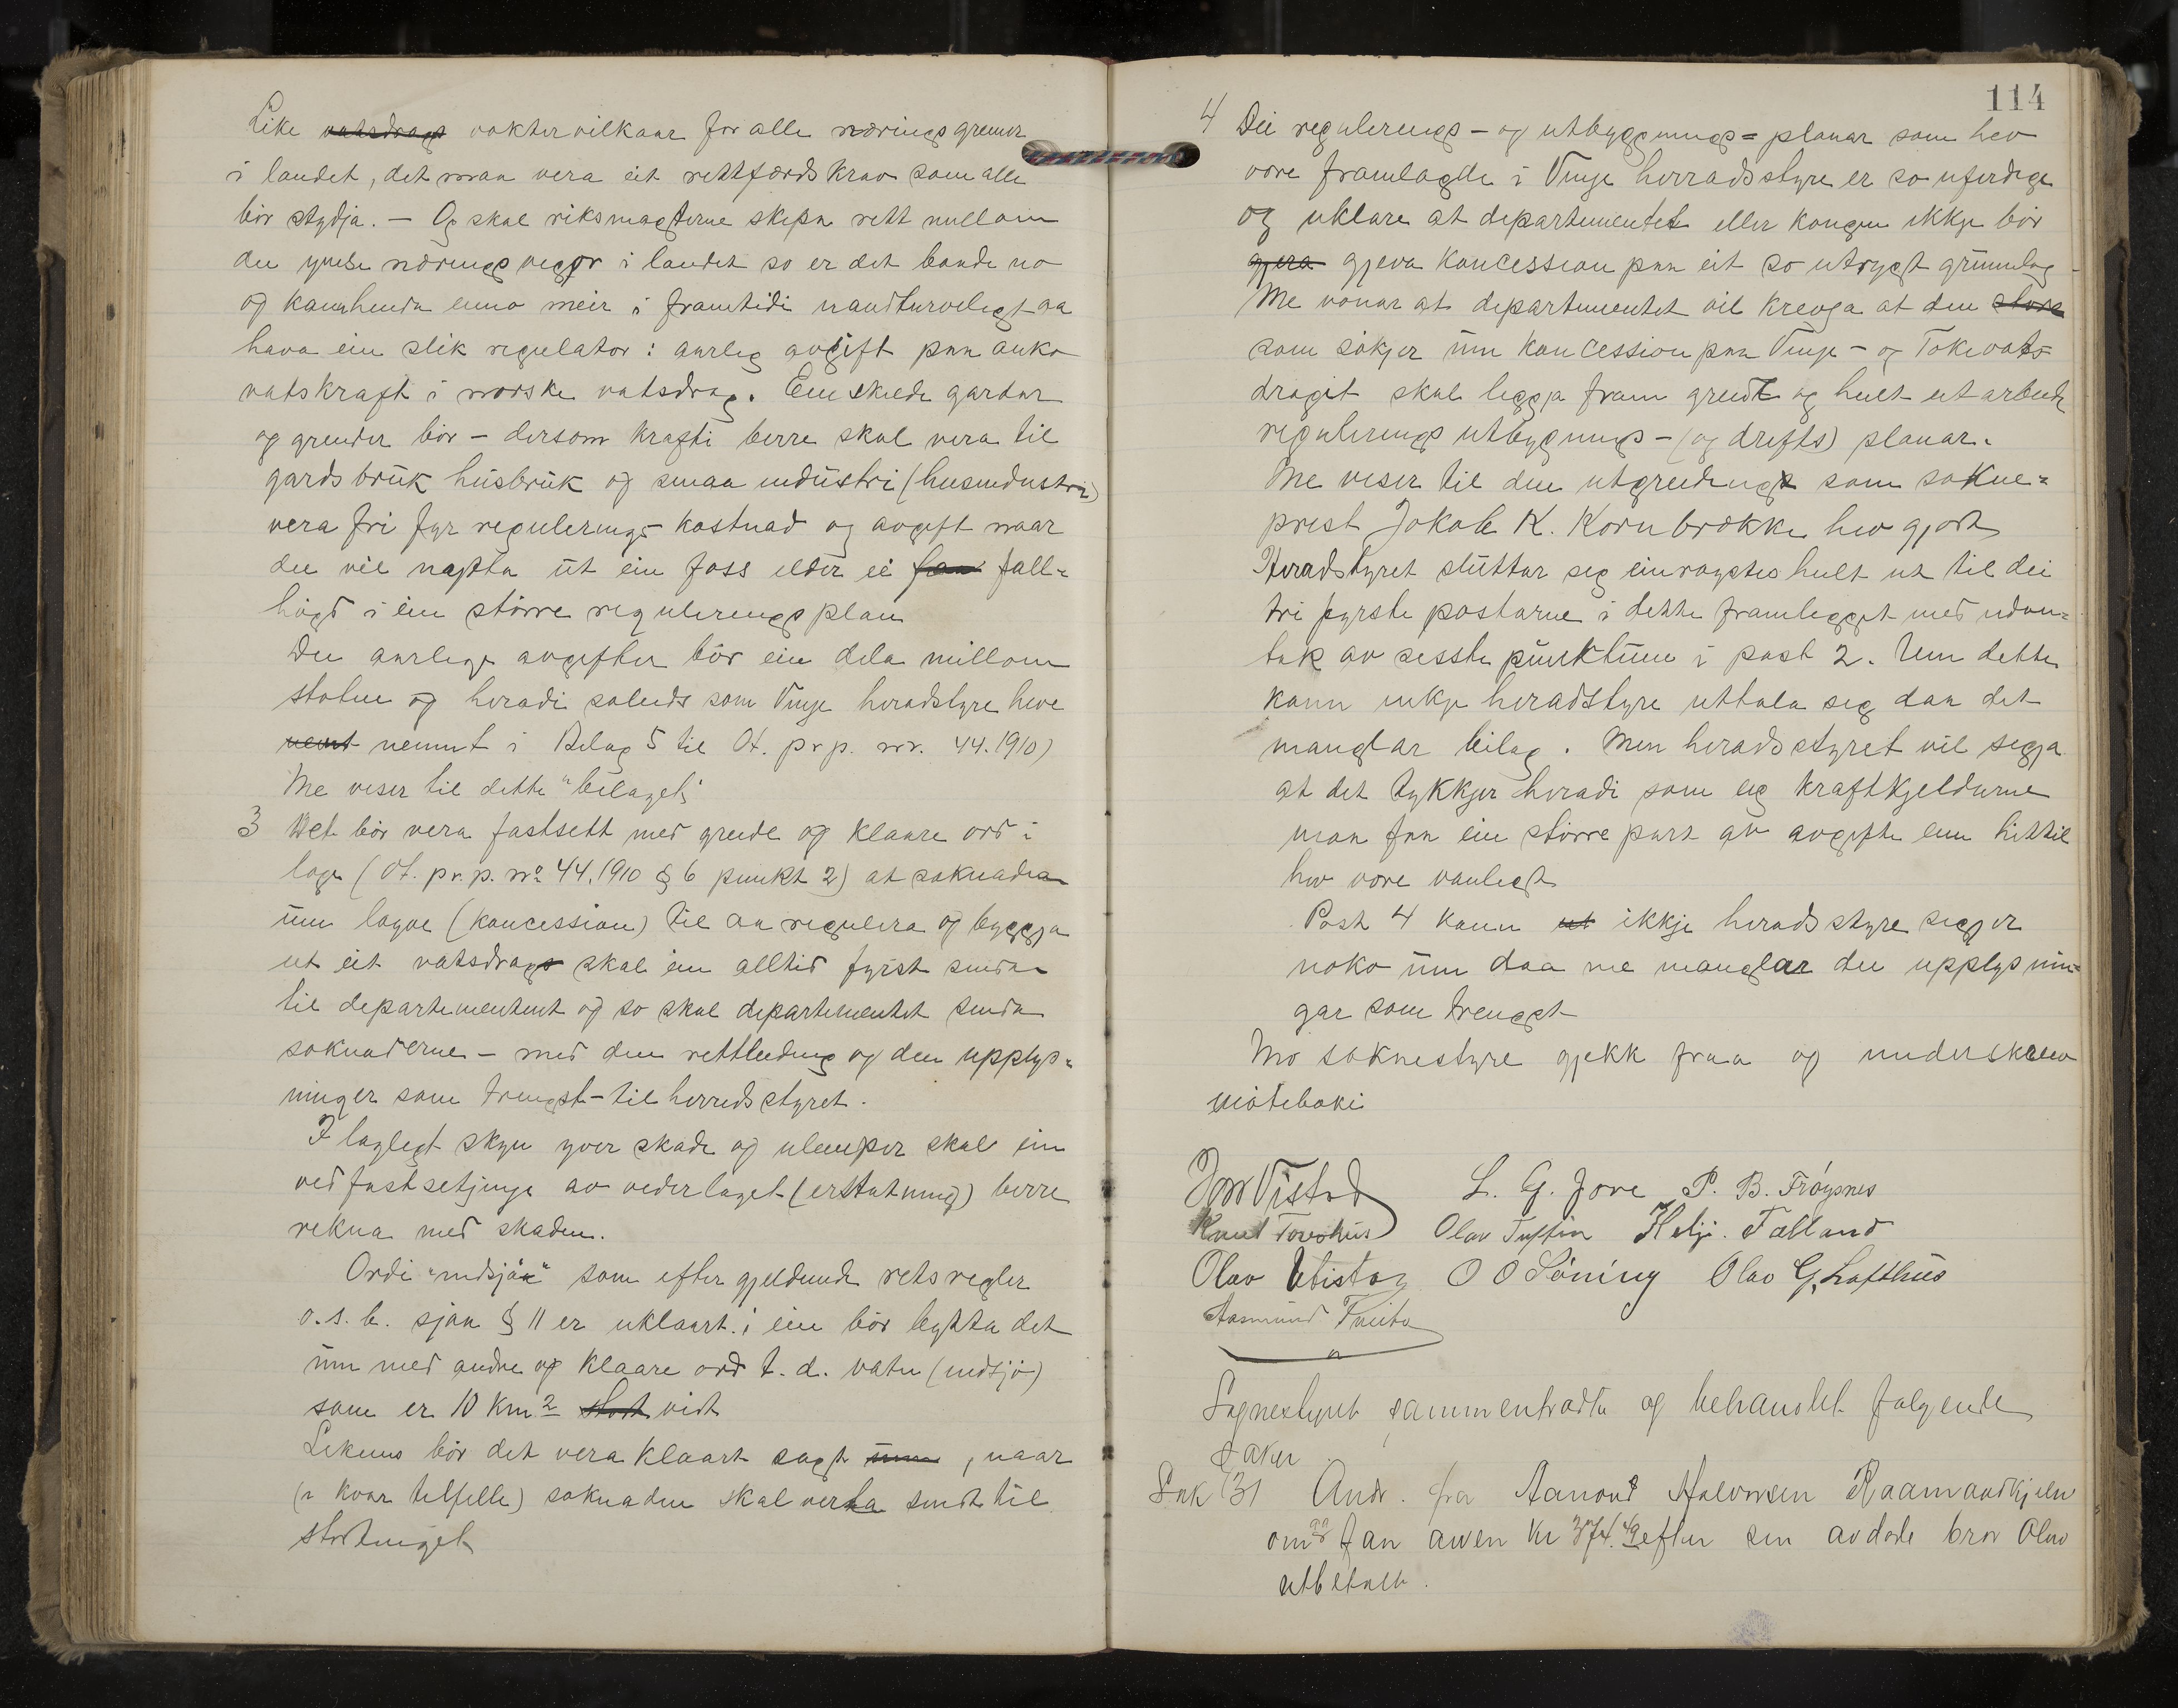 Like vatsdrags voktervilkaar for alle nærings grenir
i landet, det maa vera eit rettferds krav som alle
bör stydja. — Og skal riksmagterne skipa rett millom
dei ymse nærings vegor i landet so er det baade no
og kannhenda enno meir i framtidi naudturvelegt aa
hava ein slik regulator: aarleg avgift paa auka
vatskraft i norske vatsdrag. Einskilde gardar
og grender bör – dersom krafti berre skal vera til
gardsbruk husbruk og smaa industri (husindustri)
vera fri fyr regulerings-kostnad og avgift naar
dei vil nytta ut ein foss elder ei fall-
högd i ein större regulerings plan
Dei aarlege avgifter bör ein dela millom
staten og heradi soleids som Vinje heradstyre heve
nemt nemnt i Bilag 5 til Ot. prp. nr. 44. 1910)
Me viser til dette "bilaget"
3 Det bör vera fastsett med greide og klaare ord i
logi (Ot. pr. p. No 44, 1910 § 6 punkt 2) at soknadra
um lögve (koncession) til aa regulera og byggja
ut eit vatsdrag skal ein alltid fyrst senda
til departementent og so skal departementet senda
soknaderne – med den rettleiding og den upplys-
ninger som trengst – til herredsstyret.
I laglegt skyn yver skade og ulemper skal ein
ved fastsetjinga av vederlaget (erstatning) berre
rekna med skaden.
Ordi "indsjöa" som efter gjeldende retsregler
o.s.b. sjaa § 11 er uklaart. i ein bör bytta det
um med andre og klaare ord t. d. vatn (indsjö)
som er 10 Km2 stort vidt
Likeins bör det vera klaart sagt um , naar
(i kvar tilfelle) soknaden skal verta sendt til
stortinget
114
4 Dei regulerings – og utbyggnings = planar som hev
vore framlagde i Vinje herradsstyre er so uferdige
og uklare at departementet eller kongen ikkje bör
gjera gjeva koncession paa eit so utrygt grunnlag
Me vonar at departementet vil krevja at den store
som sökjer um koncession paa Vinje – og Tokevats-
draget skal leggja fram greidt og heilt ut arbeidt
regulerings utbygnings – (og drifts) planar.
Me viser til den utgreidings som sokne=
prest Jakob K. Kornbrække hev gjort
Heradstyret sluttar seg einrøystes heilt ut til dei
tri fyrste postarne i dette framlegget med undan=
tak av seste punktum i post 2. Um dette
kann inkje heradstyre uttala seg daa det
manglar bilag. Men heradsstyret vil segja
at det tykkjer heradi som eig kraftkjeldurne
maa faa ein större part av avgifti enn hittil
hev vore vanlegt
Post 4 kann ut ikkje heradsstyre segja
noko um daa me manglar dei upplysnin-
gar som trengst
Mo soknestyre gjekk fraa og underskreiv
möteboki
Jon Vistad L. G. Jore P. B. Fröysnes
Knut Toveshus Olav Tuftin Helje. Tælland
Olav Utistog O O Söning Olav G. Lofthus
Aasmund Tveito
Sognestyret sammentradte og behandlet følgende
saker
Sak 131 Andr. fra Aanond Halvorsen Raamandkjelen
om at faa arven kr 374.49 efter sin avdøde bror Olav
utbetalt.